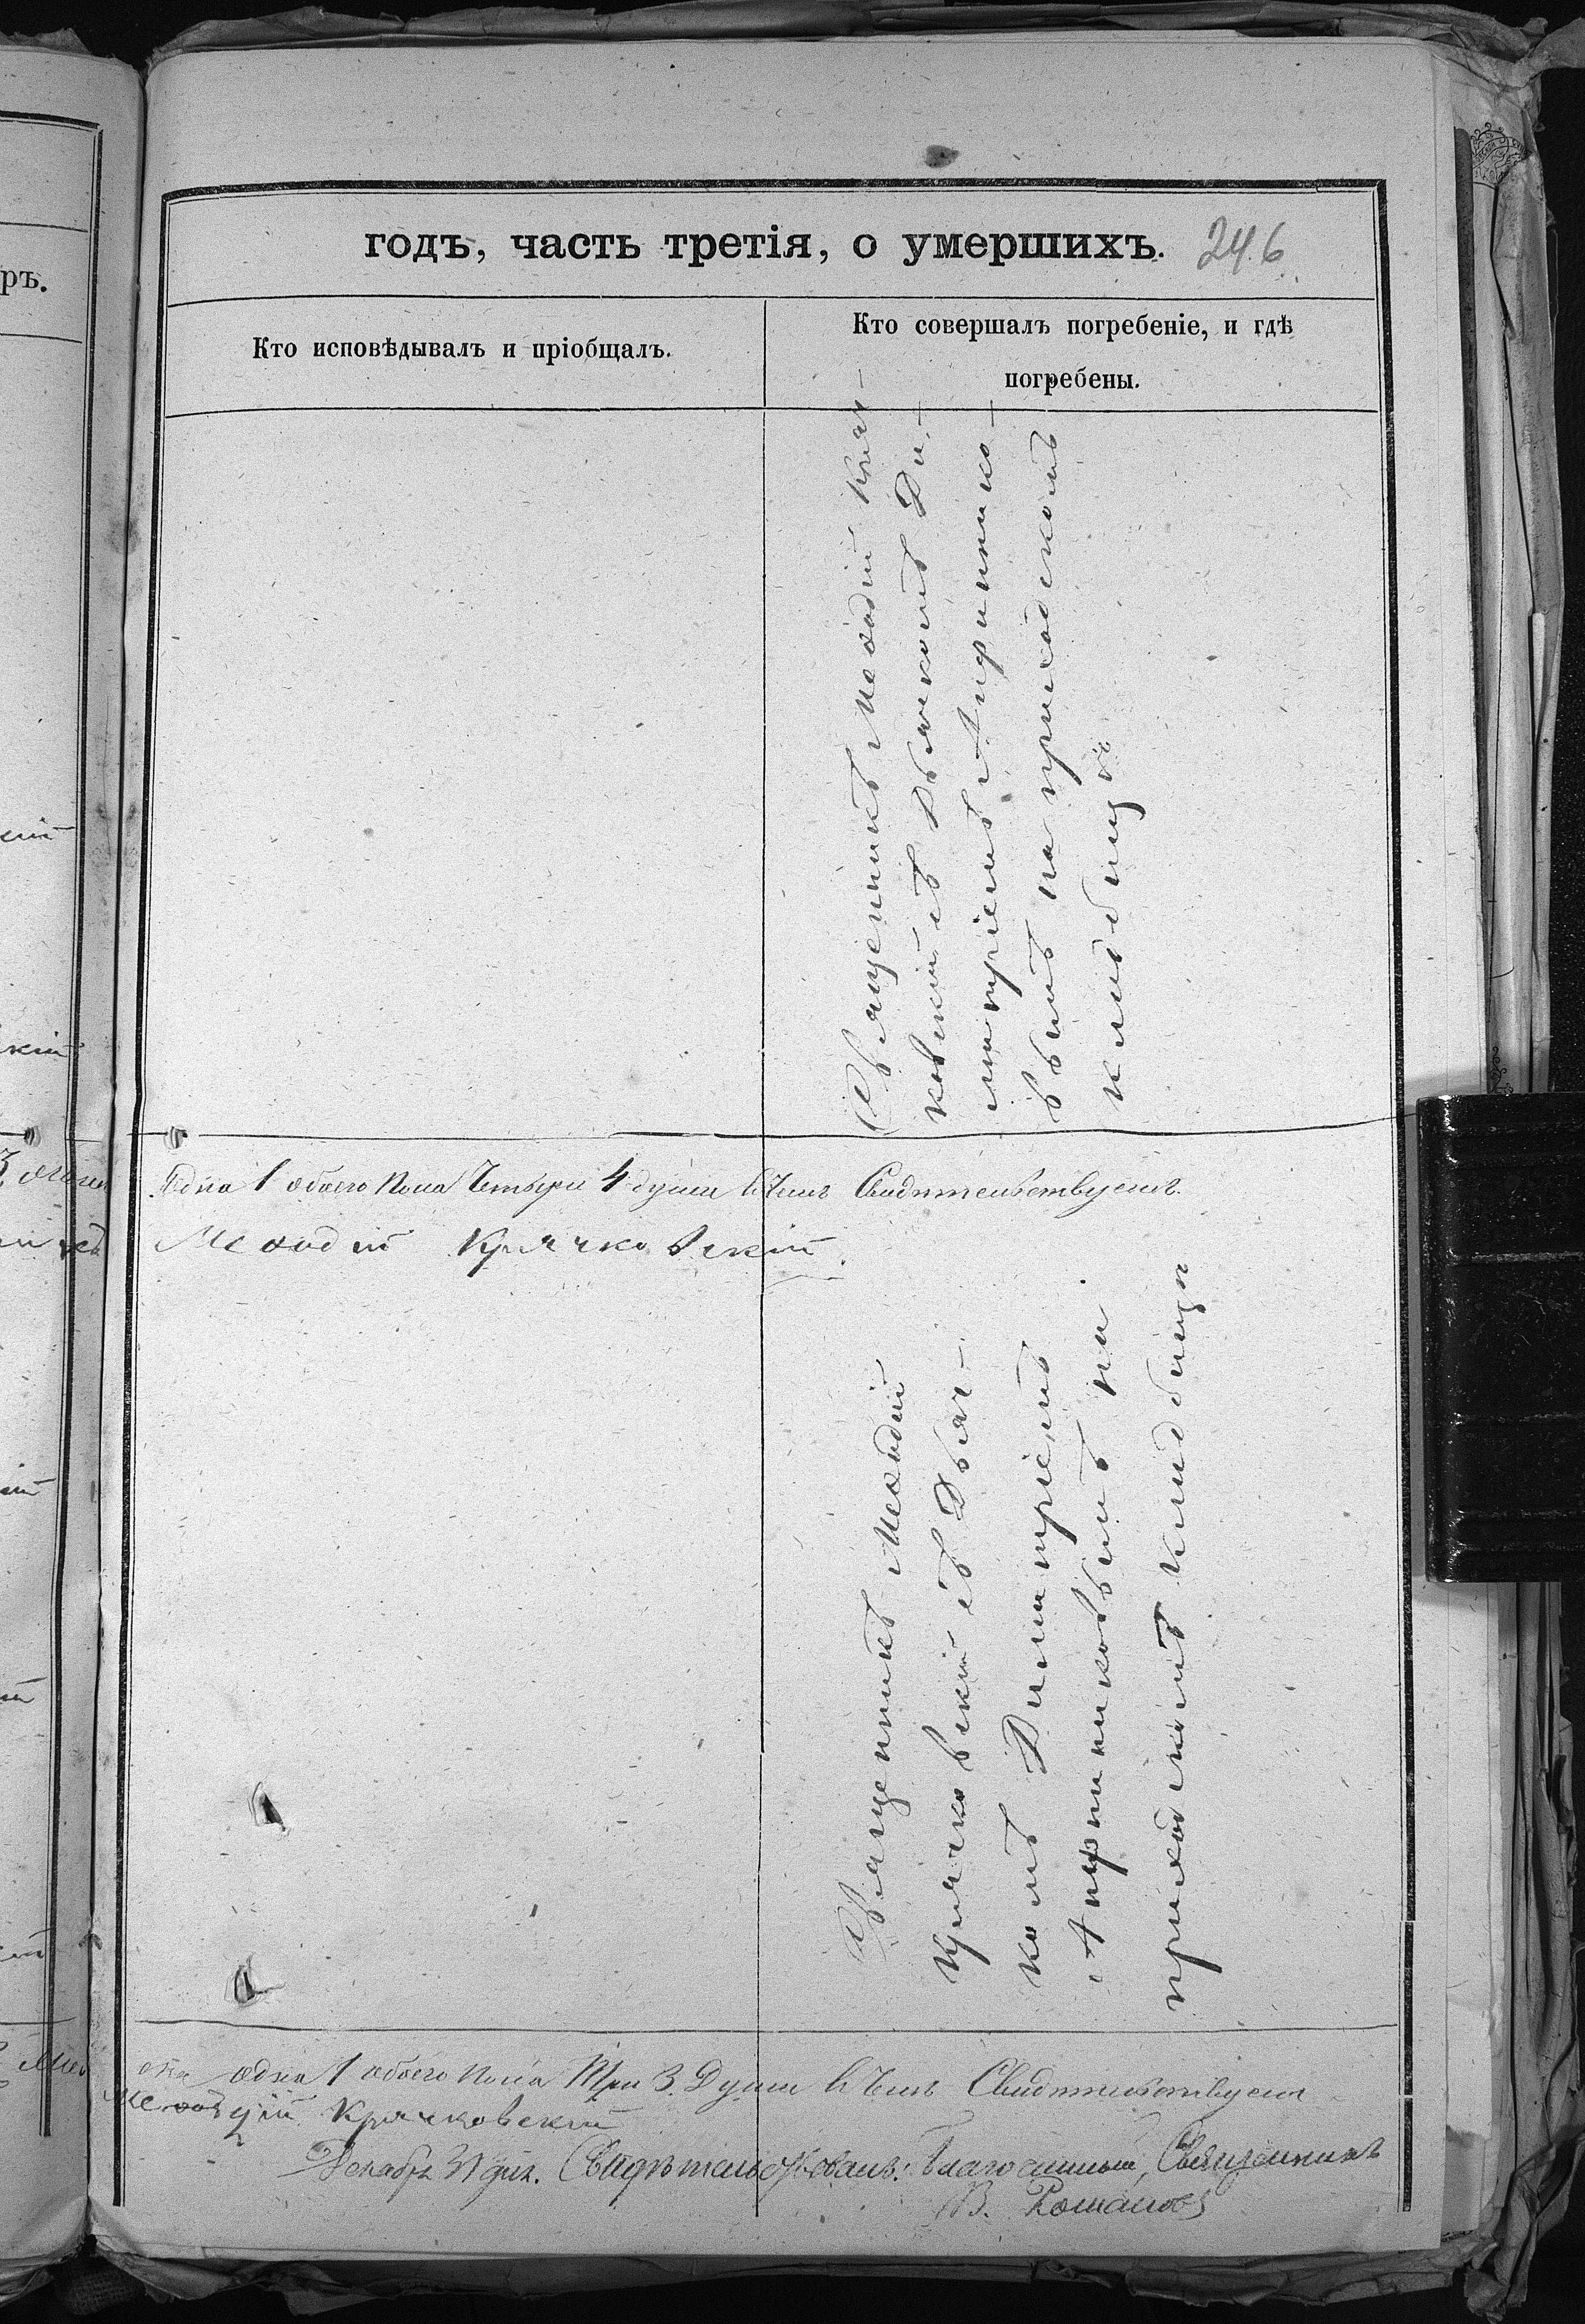 годъ, часть третія, о умершихъ. 246
Кто исповѣдывалъ и пріобщалъ.
Кто совершалъ погребеніе, и гдѣ
погребены.
Священникъ Меѳодій Кряч-
ковскій съ Дьячкомъ Ди-
митріемъ Апринико-
вымъ на приходскомъ
кладбищѣ
одна 1 обоего пола Четыре 4 души въ чемъ Свидѣтельствуемъ.
Меѳодій Крячковскій
Священникъ Меѳодій
Крячковскій съ Дьяч-
комъ Димитріемъ
Априниковымъ на
приходскомъ кладбищѣ
одна 1 обоего пола Три 3 Души въ чемъ Свидѣтельствуемъ
Меѳодій Крячковскій
Декабря 31 дня. Свидѣтельствовалъ: Благочинный, Священникъ
В. Романовъ
ръ.